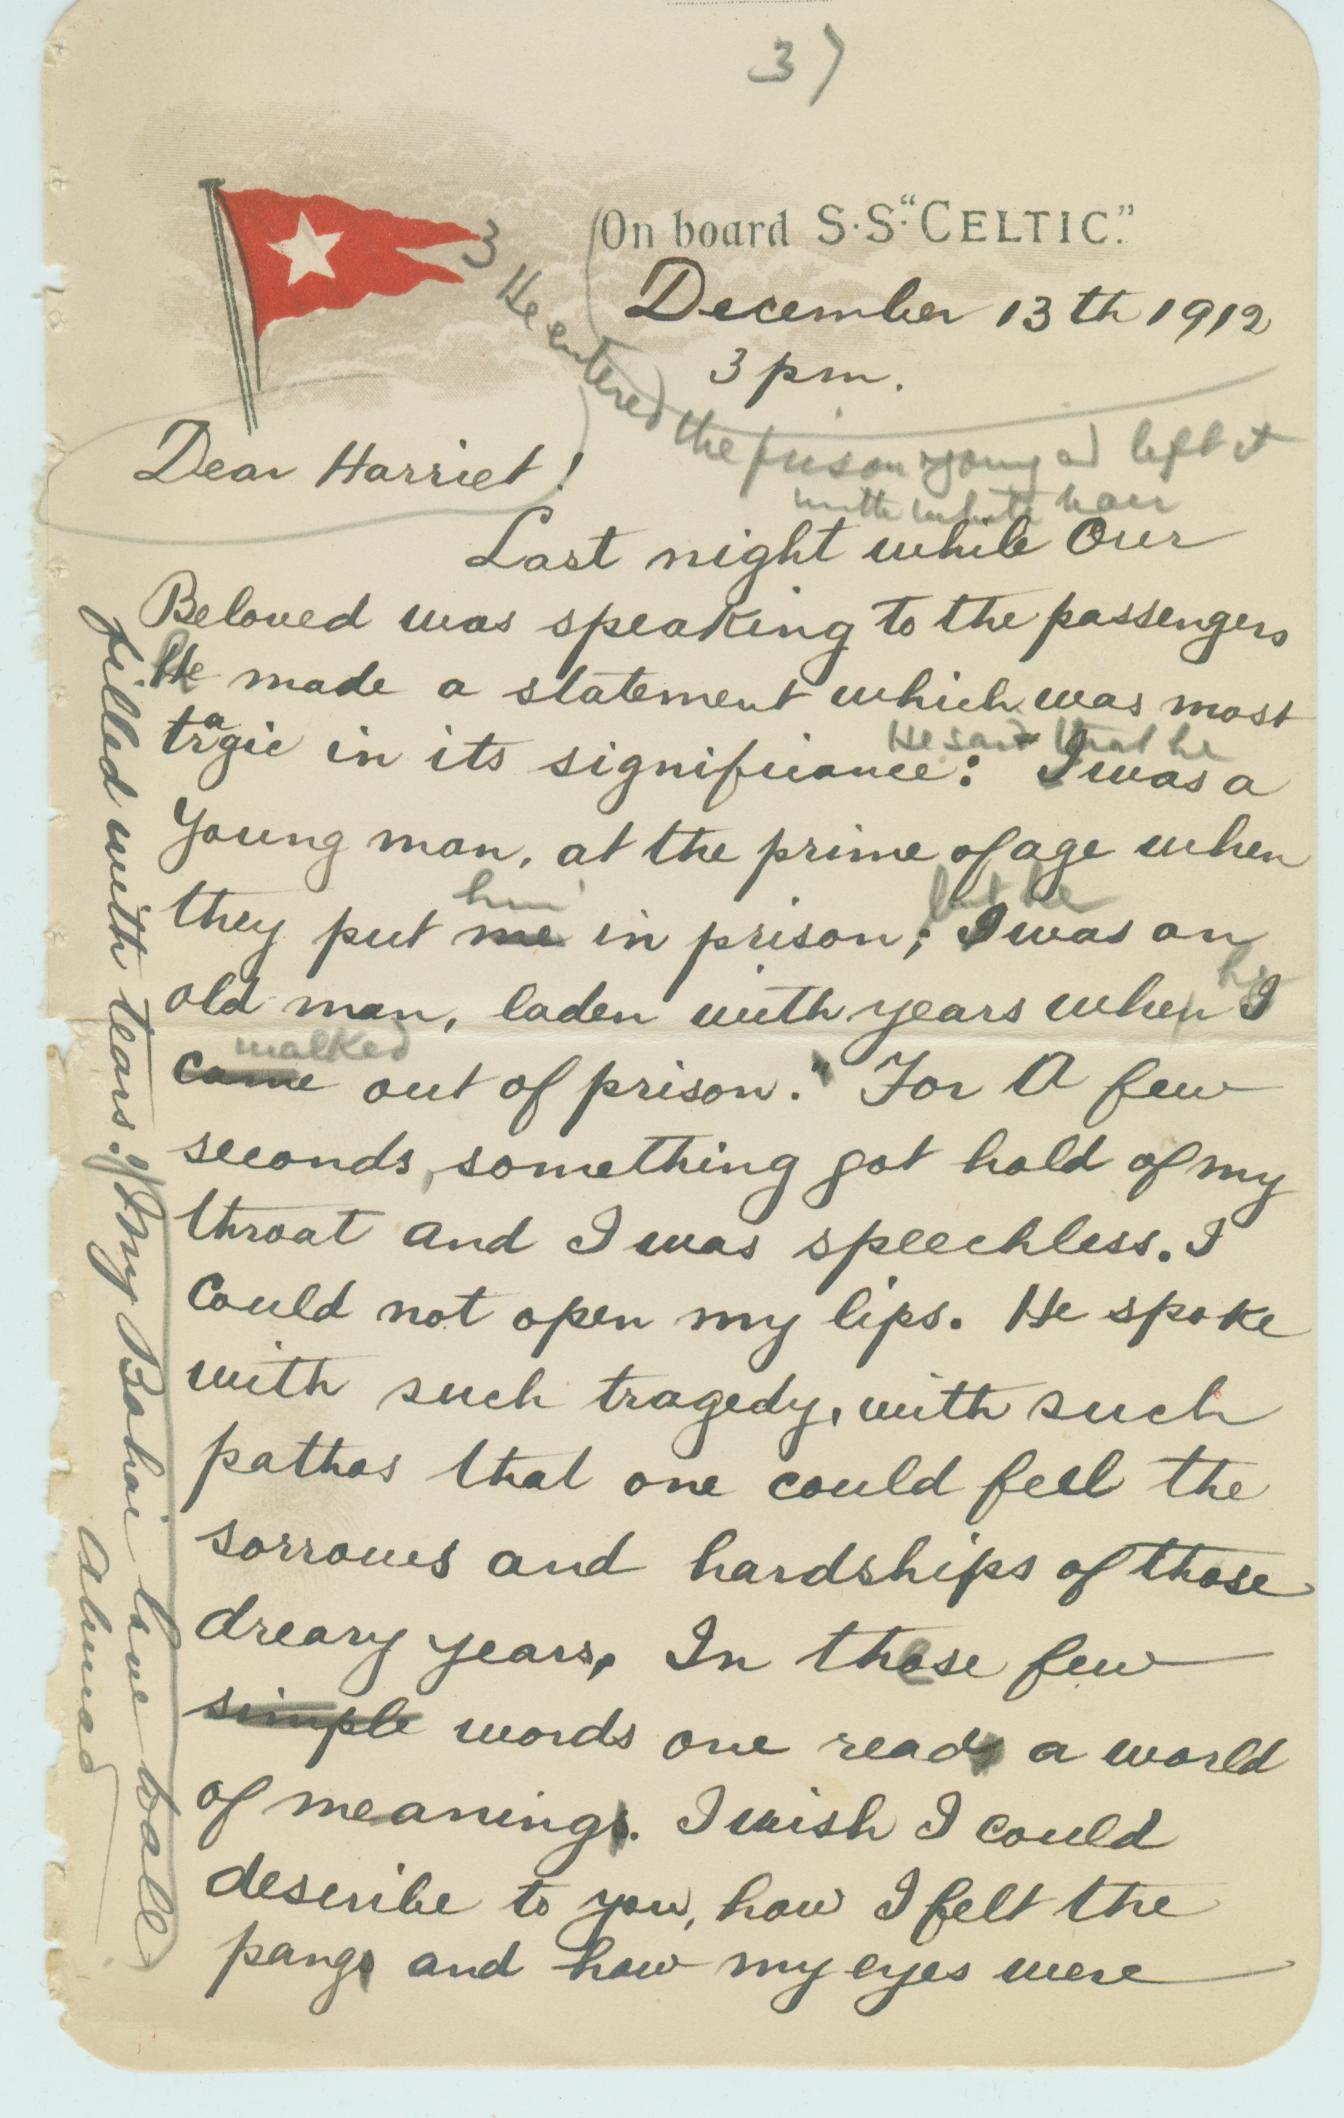 3)
On board S.S. "CELTIC."
December 13th 1912
3 pm.
3 He entered the prison young and left it
with white hair
Dear Harriet!
Last night while Our
Beloved was speaking to the passengers
He made a statement which was most
tragic in its significance: "I was a
He said that he
young man, at the prime of age when
they put me in prison; I was an
him but he
old man, laden with years when I
he
came out of prison." For a few
walked
seconds, something got hold of my
throat and I was speechless. I
could not open my lips. He spoke
with such tragedy, with such
pathos that one could feel the
sorrows and hardships of those
dreary years. In those few
simple words one reads a world
of meanings. I wish I could
describe to you, how I felt the
pangs and how my eyes were
filled with tears. My Bahai love to all
Ahmad